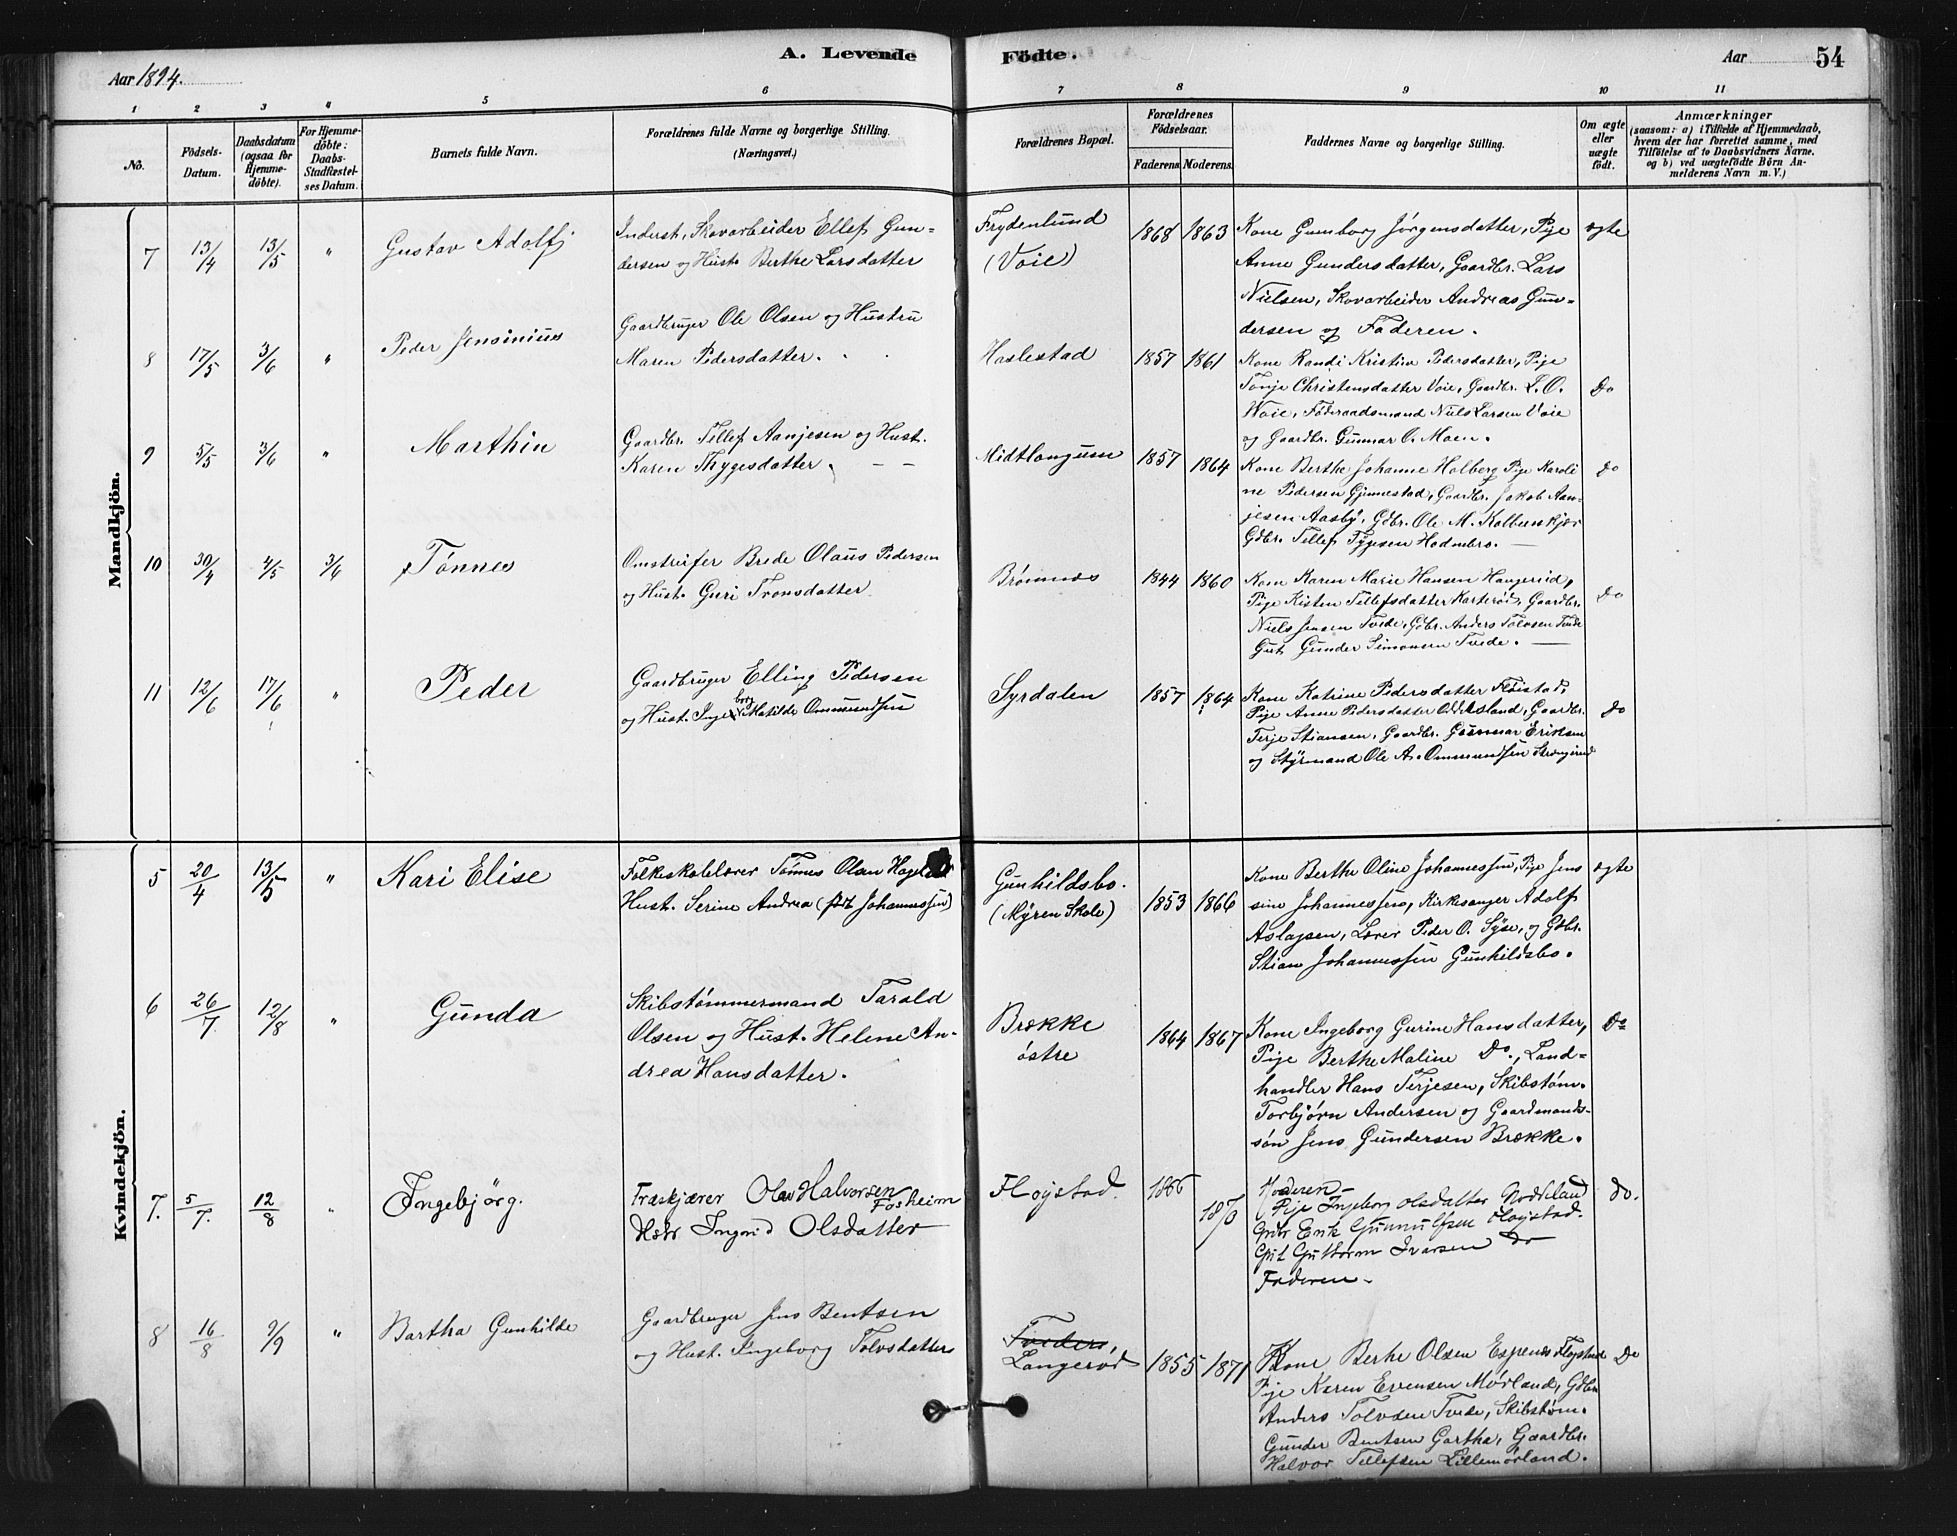 Aar 1894.
A. Levende
Födte.
Aar
54
1
2
3
"
5
6
7
8
9
10
11
No.
Födsels-
Datum.
Daabsdatum
(ogsaa for
Hjemme-
döbte).
For Hjemme-
döbte:
Daabs-
Stadfæstel-
ses Datum.
Barnets fulde Navn.
Forældrenes fulde Navne og borgerlige Stilling.
(Næringsvei.)
Forældrenes Bopæl.
Forældrenes
Födselsaar.
Faderens.
Moderens.
Faddernes Navne og borgerlige Stilling.
Om ægte
eller
uægte
födt.
Anmærkninger
(saasom: a) i Tilfælde af Hjemmedaab,
hvem der har forrettet samme, med
Tilföielse af to Daabsvidners Navne,
og b) ved uægtefödte Börn An-
melderens Navn m. V.)
Mandkjön.
7 13/4 13/5 " Gustav Adolf
Inderst, Skovarbeider Ellef Gun-
dersen og Hust. Berthe Larsdatter
Frydenlund
(Voie)
1868 1863
Kone Gumborg Jörgensdatter, Pige
Anne Gundersdatter, Gaardbr. Lars
Nielsen, Skovarbeider Andreas Gun-
dersen og Faderen.
ægte
8 17/5 3/6 " Peder Jensinius
Gaardbruger Ole Olsen og Hustru
Maren Pedersdatter.
Haslestad
1857 1861
Kone Randi Kristine Pedersdatter, Pige
Tonje Christensdatter Voie, Gaardbr. L. O.
Woie, Föderaadsmand Niels Larsen Voie
og Gaardbr. Gunnar O. Moen.
Do
9 5/5 3/6 " Marthin
Gaardbr. Tellef Aanjesen og Hust.
Karen Thygesdatter. — —
Midtlangum
1857 1864
Kone Berthe Johanne Holberg Pige Karoli
ne Pedersen Gjennestad, Gaardbr. Jakob Aan-
jesen Aasby, Gdbr. Ole M. Kalbeenkjær
Gdbr. Tellef Tygesen Hodnebro. —
do
10 30/4 4/5 3/6 Tønnes
Omstreifer Brede Olaus Pedersen
og Hust. Guri Tronsdatter
Brømnes
1844 1860
Kone Karen Marie Hansen Haugerid,
Pige Kisten Tellefsdatter Karterød, Gaardbr.
Niels Jensen Tvede, Gdbr. Anders Tolvsen Tvede
Gut Gunder Simonsen Tvede. —
Do
11 12/6 17/6 " Peder
Gaardbruger Elling Pedersen
og Hust. Ingeborg Matilde Ommundsen
Syrdalen
1857 1864
Kone Katrine Pedersdatter Fløistad,
Pige Anne Pedersdatter Oddersland, Gaardbr.
Terje Stiansen, Gaardbr. Gunnar Eriksen
og Styrmand Ole A. Ommundsen Strengerud
Do
Kvindekjön.
5 20/4 13/5 " Kari Elise
Folkeskolelærer Tønnes Olsen
Hust. Serine Andrea (født Johannessen)
Gunhildsbo.
(Myren Skole)
1853 1866
Kone Berthe Oline Johannessen, Pige Jens
sine Johannessen, Kirkesanger Adolf
Aslagsen, Lærer Peder O. Syse, og Gdbr.
Stian Johannessen Gunhildsbo.
ægte
6 26/7 12/8 " Gunda
Skibstømmermand Tarald
Olsen og Hust. Helene An-
drea Hansdatter.
Brække
østre
1864 1867
Kone Ingeborg Gurine Hansdatter,
Pige Berthe Maline Do., Land-
handler Hans Terjesen, Skibstøm.
Torbjørn Andersen og Gaardmands-
søn Jens Gundersen Brække.
Do
7. 5/7. 12/8 " Ingebjörg.
Træskjærer Olav Halvorsen
Fosheim
Hstr Ingrid Olsdatter
Fløistad.
1866
1870
Moderen—
Pige Ingeborg Olsdatter
Gdbr Erik Gunnulfsen Fløystad.
Gut Guthorm Ivarsen do
Faderen—
do.
8 16/8 9/9 " Bartha Gunhilde
Gaardbruger Jens Bentsen
og Hust. Ingeborg Tolvsdatter
Langerød
1855 1871
Kone Berthe Olsen Espenes Fløystad
Pige Karen Evensen Mørland, Gdbr
Anders Tolvsen Tvede, Skibstøm.
Gunder Bentsen Gartha, Gaardbr.
Halvor Tellefsen Lillemørland.
Do